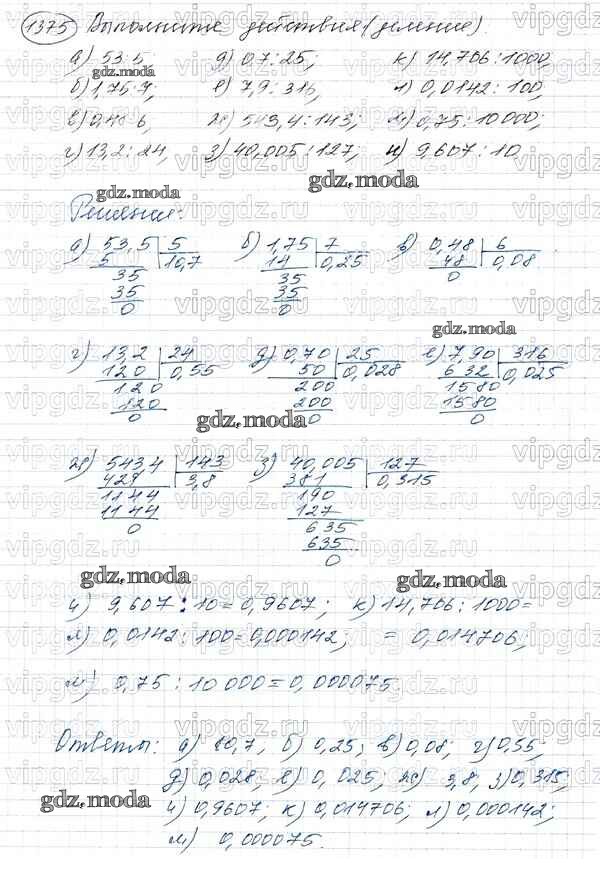 1375 Выполните действия (деление).
а) 53:5; д) 0,7:25; к) 14,706:1000,
б) 1,75:7; е) 7,9:316, л) 0,0142:100,
в) 0,48:6 ж) 543,4:143; м) 0,75:10000;
г) 13,2:24, з) 40,005:127; и) 9,607:10
gdz.moda
gdz.moda
gdz.moda
Решение:
а) 53,5 5 б) 1,75 7 в) 0,48 6
5 10,7 14 0,25 48 0,08
35 35 0
35 35
0 0
gdz.moda
г) 13,2 24 д) 0,70 25 е) 7,90 316
120 0,55 50 0,028 632 0,025
120 200 1580
120 200 1580
0 0 0
gdz.moda
ж) 543,4 143 з) 40,005 127
429 3,8 381 0,315
1144 190
1144 127
0 635
635
0
gdz.moda
gdz.moda
и) 9,607 : 10 = 0,9607; к) 14,706 : 1000 =
л) 0,0142 : 100 = 0,000142; = 0,014706;
м) 0,75 : 10 000 = 0,000075.
Ответы: а) 10,7, б) 0,25; в) 0,08; г) 0,55;
д) 0,028, е) 0,025; ж) 3,8, з) 0,315,
gdz.moda
и) 0,9607; к) 0,014706, л) 0,000142;
м) 0,000075.